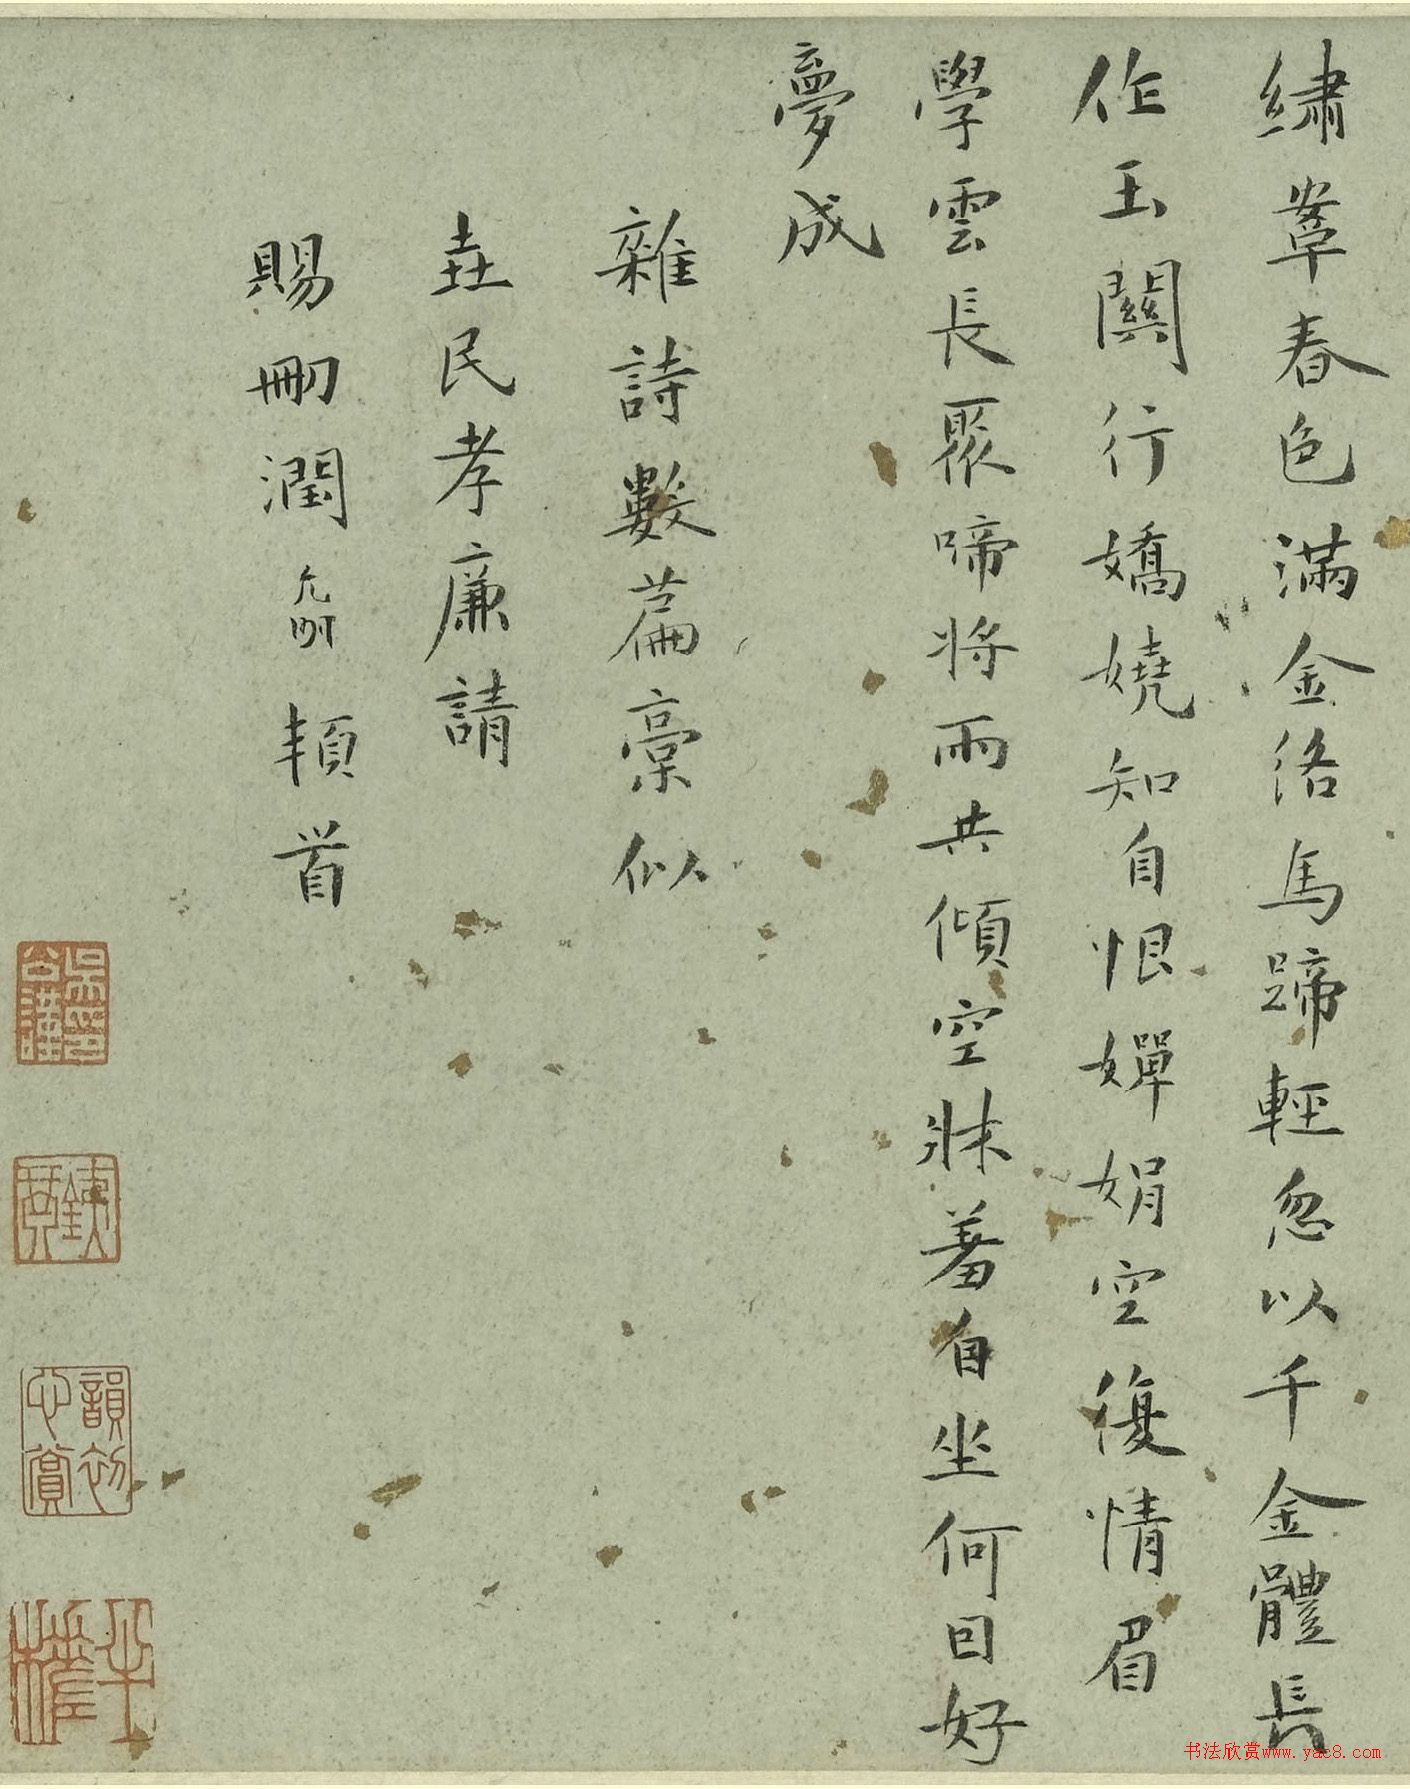 繡鞌春色滿金洛馬蹄輕忽以千金體長
作玉關行嬌嬈知自恨嬋娟空復情眉
學雲長聚啼將雨共傾空牀蓐自坐何日好
夢成
雜詩數篇槀似
垚民孝廉請
賜刪潤允明頓首
韻初心賞
平權
书法欣赏www.yac8.com